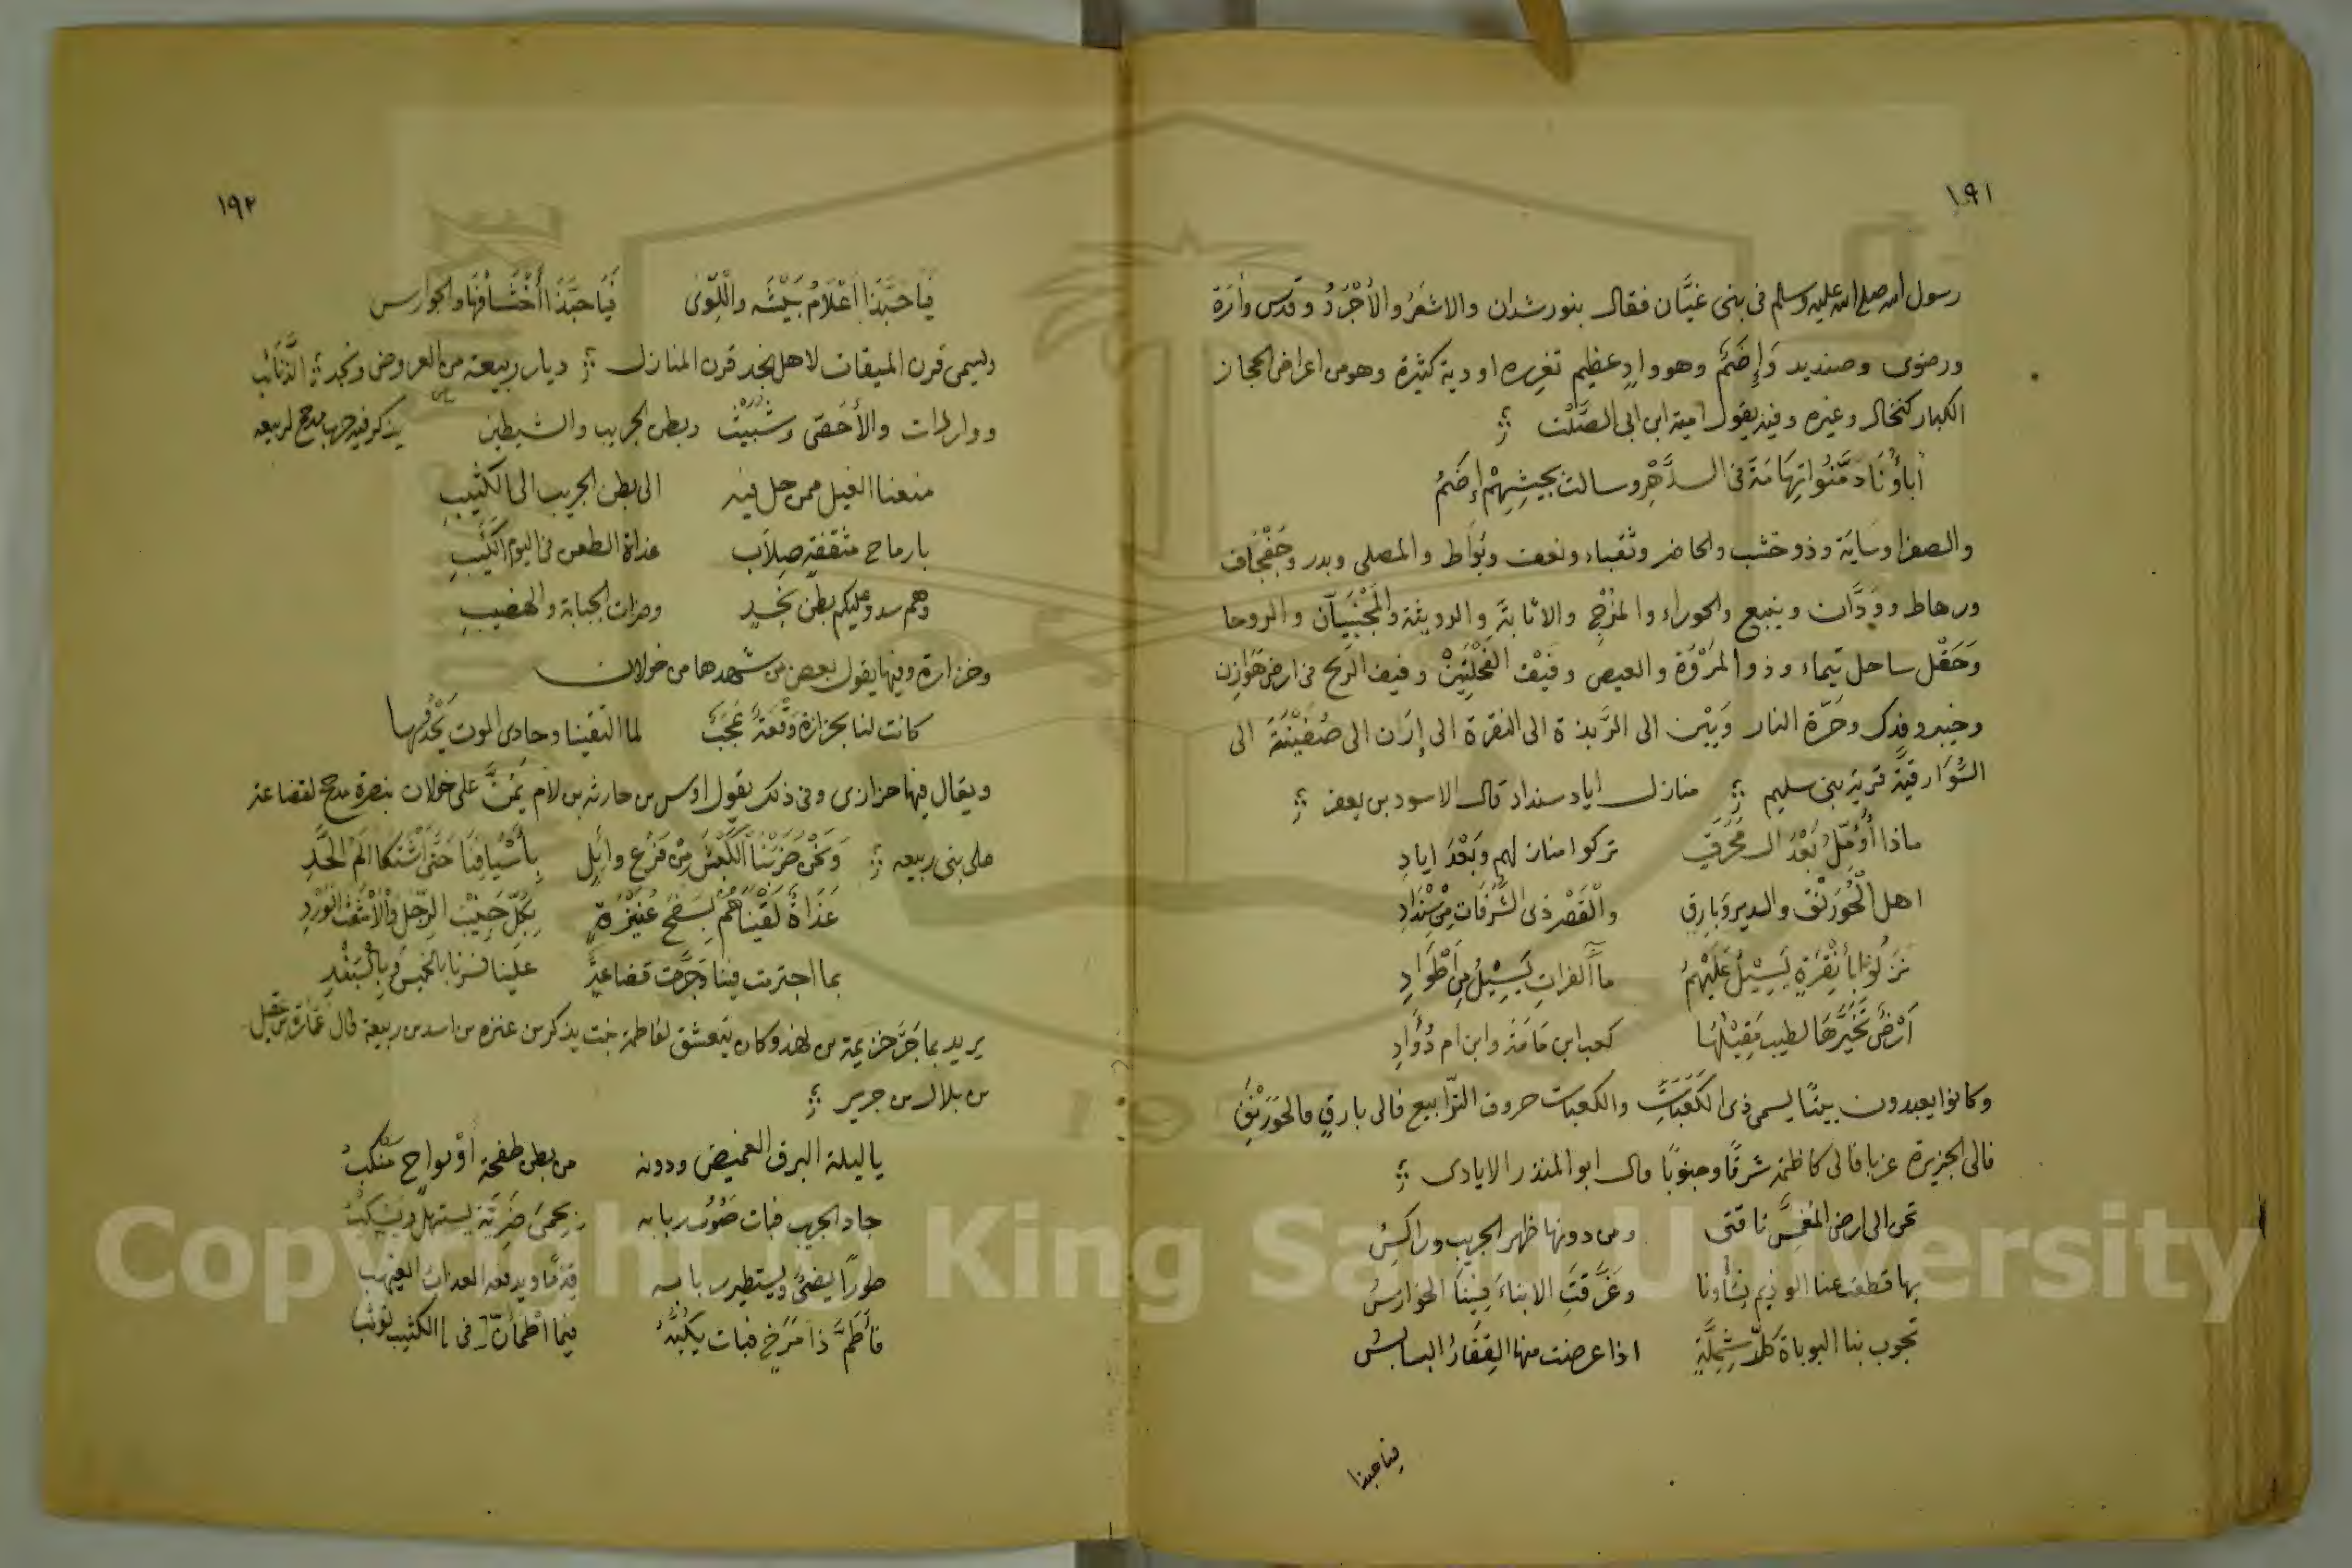 ١٩١
رسول الله صلى الله عليه وسلم في بني غيَّان فقال بنو رشدان والاشعَرُ والأجْرَدُ وقدس وأرَة
ورضوى وصنديد وَإِضَمٌ وهو وادٍ عظيم تغزره اودية كثيرة وهو من اعراض الحجاز
الكبار كنخال وغيره وفيه يقول امية ابن ابى الصَّلْت
أباؤُنَا دمَّنُوا تِهَامَةَ فى الدَّهْرِ وسالت بجيشِهِمْ إِضَمُ
والصفرا وسَايَة وذو خشب والحاضر وثقباء ونعف وبُوَاط والمصلى وبدر وجَفْجَاف
ورهاط وودَّان وينبع والحوراء والمرْج والاثابَة والرويثة والروحا
وَحَقْل ساحل تيماء وذو المَرْوَة والعيص وفيْف الفَحْلَتَيْنْ وفيف الريح فى ارض هَوَازن
وخيبر وفدك وحَرّة النار وَيَيْن الى الرَّبذة الى النقرة الى إرَن الى صُفَيْنَةَ الى
السَّوَارقيَّة قرية بنى سليم منازل اياد سنداد قال الاسود بن يعفر
ماذا أُؤَمِّلُ بَعْدَ ال مُحَرِّقٍ تركوا منازلهم وبَعْدَ ايادِ
اهل الْخُوَرْنَق والسديرِ وَبَارِقٍ والْقَصْرِ ذى الشُّرُفَاتِ مِنْ سِنْدَادِ
نَزَلُوا بأَنْقِرَةٍ يَسِيْلُ عَلَيْهِمُ ماءُ الفراتِ يَسِيْلُ مِنْ أَطْوَادِ
أرْضٌ تَخَيَّرَهَا لطيب مَقِيْلها كعب ابن مَامَةَ وابن ام دُؤَادِ
وكانوا يعبدون بيتًا يسمى ذى الكَعَبَاتِ والكعبات حروف التَّرابيع فالى بارقٍ فالخوَرْنَقِ
فالى الجزيرة غربا فالى كاظمة شرقًا وجنوبًا قال ابو المنذر الايادى
تحن الى ارض المُغَمَّس ناقتى ومن دونها ظهر الجريب وراكسُ
بها قطعت عنا الوذيم نساؤنا وغَرَّقتِ الابناءَ فِينَا الخوارسُ
تجوب بنا البوباة كلّ شِمِلَّةٍ اذا عرضت منها القِفَارُ البسابسُ
فيا حبذا
١٩٢
فَيَا حَبَّذَا أعْلَامُ بَيْشَه واللّوى فَيَا حَبَّذَا أَخْشَافُهَا والجوارس
ويسمى قرن الميقات لاهل نجد قرن المنازل ديار ربيعة من العروض ونجد الذَّنَائب
وواردات والأحَصّ وشُبَيْثْ وبطن الجريب والشيطين يذكر فيه حربا مذحج لربيعه
منعنا الغيل ممن حل فيه الى بطن الجريب الى الكثيبِ
بارماح مثقفةٍ صِلَاب غداة الطعن فى اليوم الكَئيبِ
وهم سدو عليكم بطن نَجْدٍ وضرات الجبابة والهضيبِ
وخزازة وفيها يقول بعض من شهدها من خولان
كانت لنا بخزازة وَقْعَةٌ عَجَبٌ لما التقينا وحادى الموت يَحْدُيها
ويقال فيها خزازى وفى ذلك يقول اوس بن حارثه بن لام يَمُنُّ على خولان بنصرة مذحج لقضاعة
على بنى ربيعه وَنَحْنُ ضَرَبْنَا الكَبْشَ مِنْ فَرْعِ وائِلٍ بِأَسْيَافِنَا حَتَّى اشْتَكَا الَمَ الحَدِّ
غَدَاةَ لَقِيْنَاهُمْ بِسَفْحِ عُنَيْزَةٍ بِكُلِّ حَنِيْبِ الرِّجْلِ والأشْعَثِ الوَرْدِ
بما اجترمت فينا وَجَرَّت قضاعةٌ علينا فسرنا بالخميس وبالْبَنْدِ
يريد بما جَرَّ خزيمة بن نهد وكان يتعشق لفاطمة بنت يذكر بن عنزه بن اسد بن ربيعة قال عُمَارَة بن عقيل
بن بلال بن جرير
يا ليلة البرق الغميض ودونه من بطن طفحة او نواحٍ مَنْكبُ
جاد الجريب فبات صَوْبُ ربابه بحمى ضَرِيَّة يستهلّ ويسْكُبُ
طورًا يضئُ ويستطير ربابه قِدْمًا ويدفعه العدابُ الغيهب
فأطَمَّ ذا مَرَخٍ فبات يكبُّهُ فيما اطْمأنَّ فى الكثيب